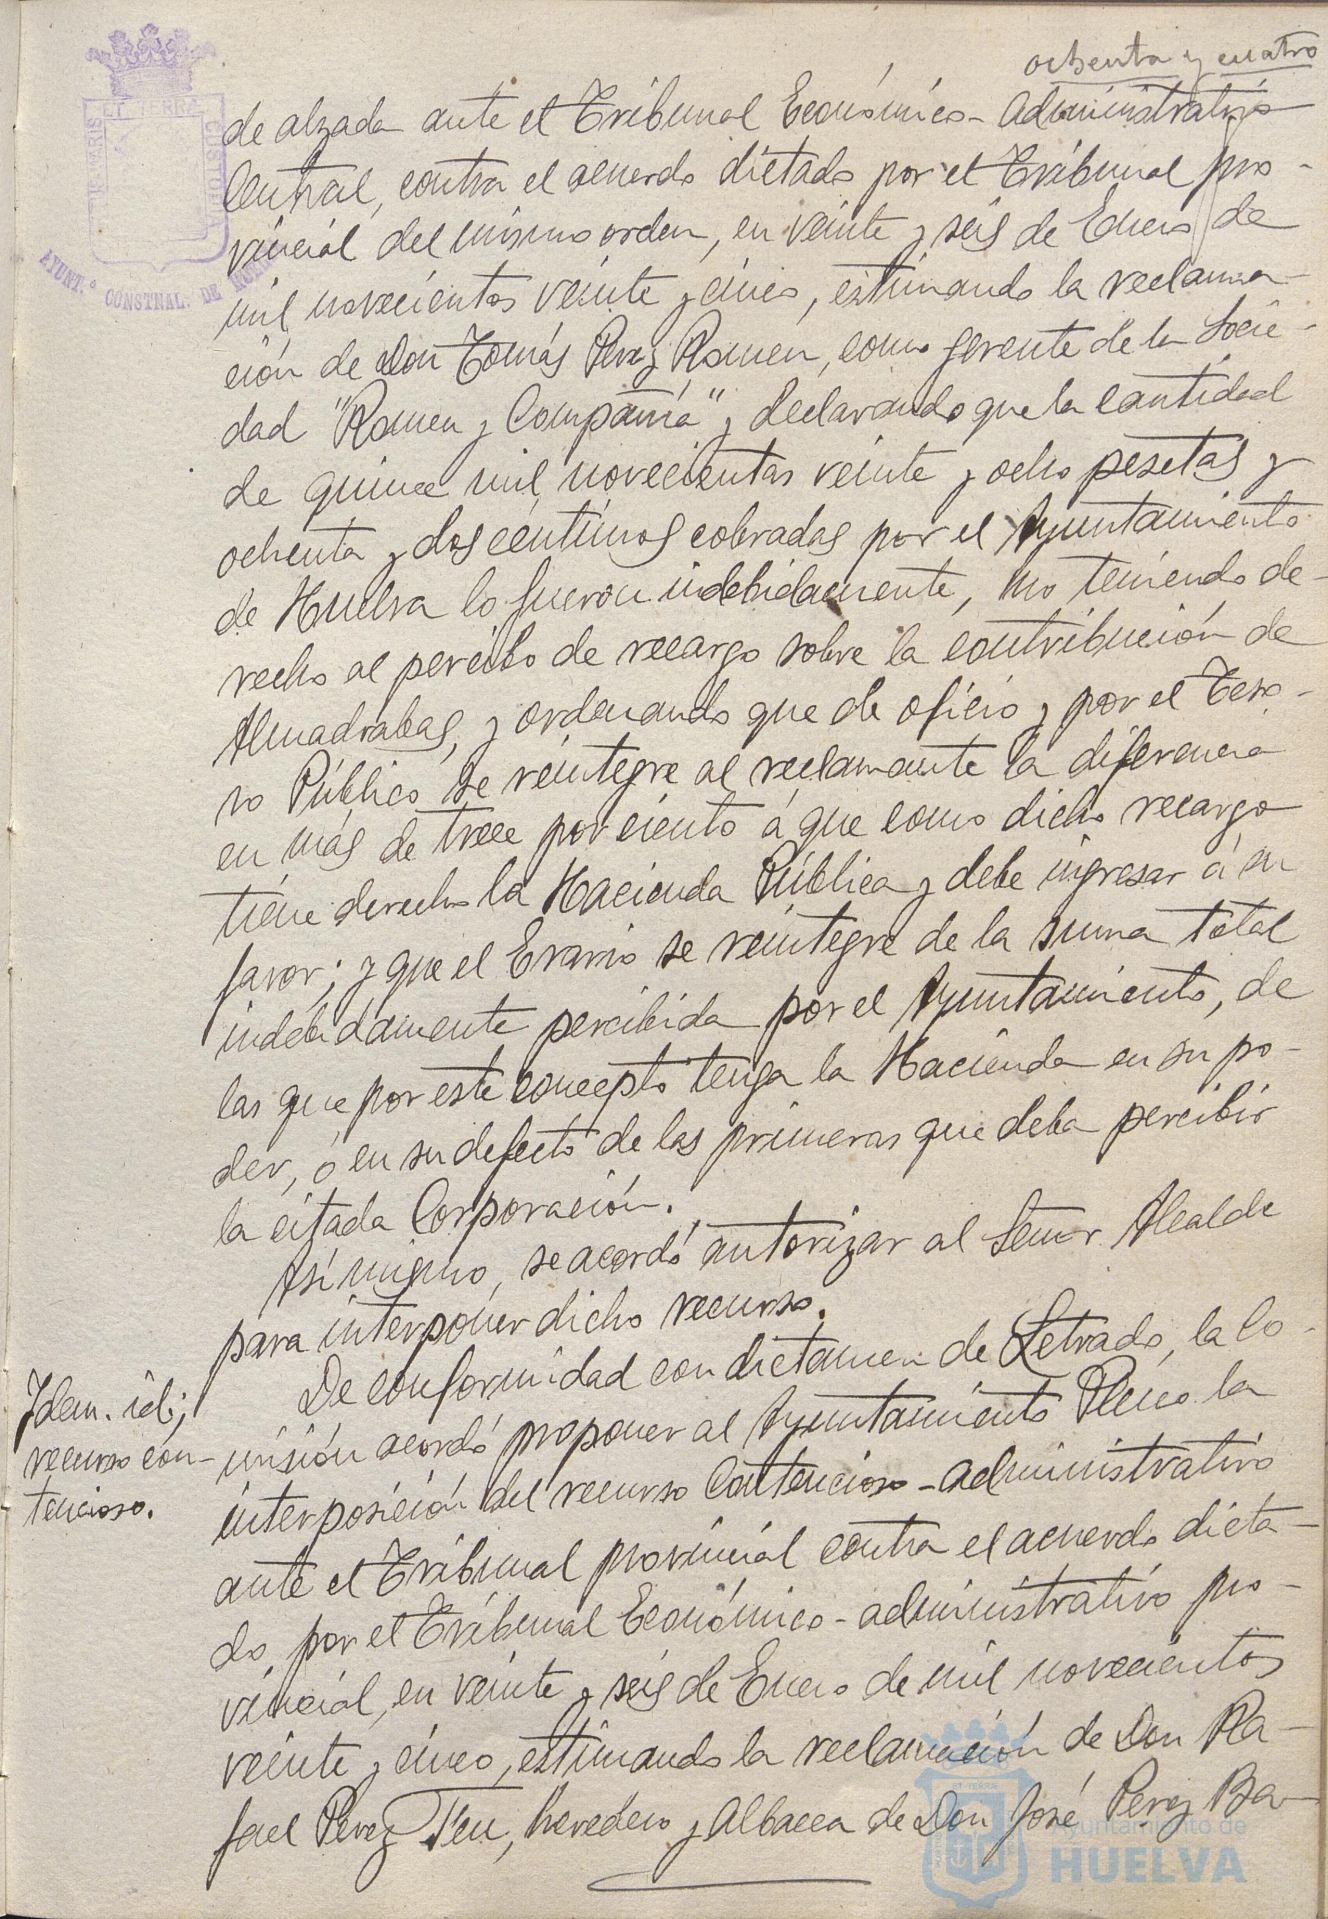 ochenta y cuatro
de alzada ante el Tribunal Económico-Administrativo
Central, contra el acuerdo dictado por el Tribunal pro-
vincial del mismo orden, en veinte y seis de Enero de
mil novecientos veinte y cinco, estimando la reclama-
ción de Don Tomás Perez Romeu, como gerente de la Socie-
dad "Romeu y Compañía" y declarando que la cantidad
de quince mil novecientas veinte y ocho pesetas y
ochenta y dos céntimos cobradas por el Ayuntamiento
de Huelva lo fueron indebidamente, no teniendo de-
recho al percibo de recargo sobre la contribución de
Almadrabas, y ordenando que de oficio y por el Teso-
ro Público se reintegre al reclamante la diferencia
en más de trece por ciento á que como dicho recargo
tiene derecho la Hacienda Pública y debe ingresar á su
favor; y que el Erario se reintegre de la suma total
indebidamente percibida por el Ayuntamiento, de
las que por este concepto tenga la Hacienda en su po-
der, ó en su defecto de las primeras que deba percibir
la citada Corporación.
Así mismo, se acordó autorizar al Señor Alcalde
para interponer dicho recurso.
Idem. id;
recurso con-
tencioso.
De conformidad con dictamen de Letrado, la Co-
misión acordó proponer al Ayuntamiento Pleno la
interposición del recurso Contencioso-administrativo
ante el Tribunal provincial contra el acuerdo dicta-
do, por el Tribunal Económico-administrativo pro-
vincial, en veinte y seis de Enero de mil novecientos
veinte y cinco, estimando la reclamación de Don Ra-
fael Perez Feu, heredero y Albacea de Don José Perez Ba-
AYUNT.º CONSTNAL. DE HUELVA
PORTUS MARIS ET TERRÆ CUSTODIA
Ayuntamiento de
HUELVA